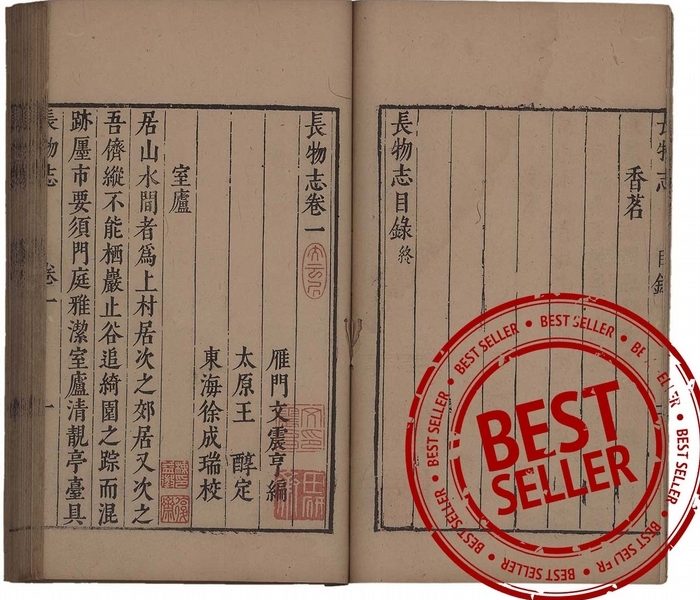 長物志 目錄
香茗
長物志目錄 終
長物志卷一
雁門文震亨編
太原王 醇定
東海徐成瑞校
室廬
居山水間者爲上村居次之郊居又次之
吾儕縱不能栖巖止谷追綺園之踪而混
跡廛市要須門庭雅潔室廬清靚亭臺具
長物志 卷一 一
BEST
SELLER
BEST SELLER • BEST SELLER • BEST SELLER • BEST SELLER • BEST SELLER • BEST SELLER • BEST SELLER • BEST SELLER •